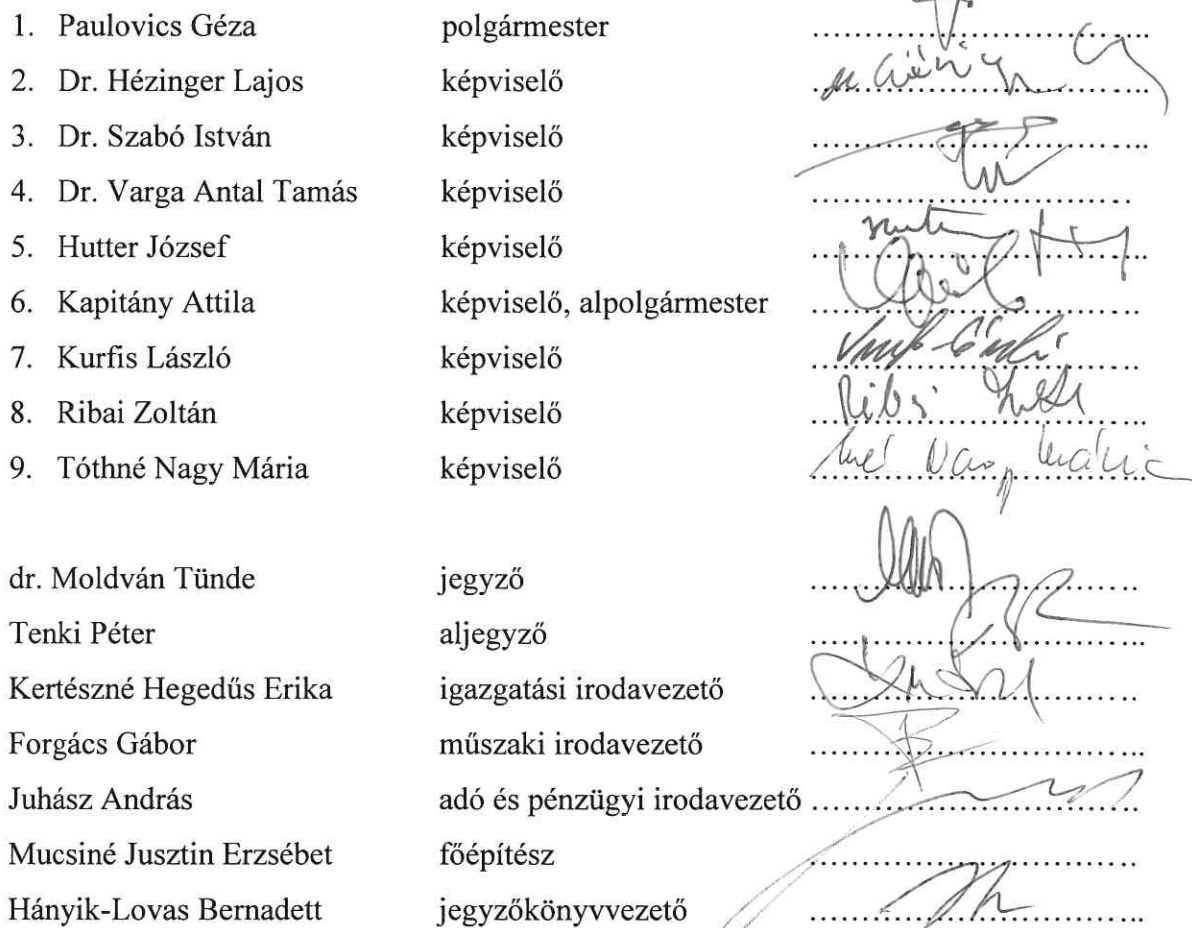 1. Paulovics Géza polgármester
2. Dr. Hézinger Lajos képviselő
3. Dr. Szabó István képviselő
4. Dr. Varga Antal Tamás képviselő
5. Hutter József képviselő
6. Kapitány Attila képviselő, alpolgármester
7. Kurfis László képviselő
8. Ribai Zoltán képviselő
9. Tóthné Nagy Mária képviselő
dr. Moldván Tünde jegyző
Tenki Péter aljegyző
Kertészné Hegedűs Erika igazgatási irodavezető
Forgács Gábor műszaki irodavezető
Juhász András adó és pénzügyi irodavezető
Mucsiné Jusztin Erzsébet főépítész
Hányik-Lovas Bernadett jegyzőkönyvvezető